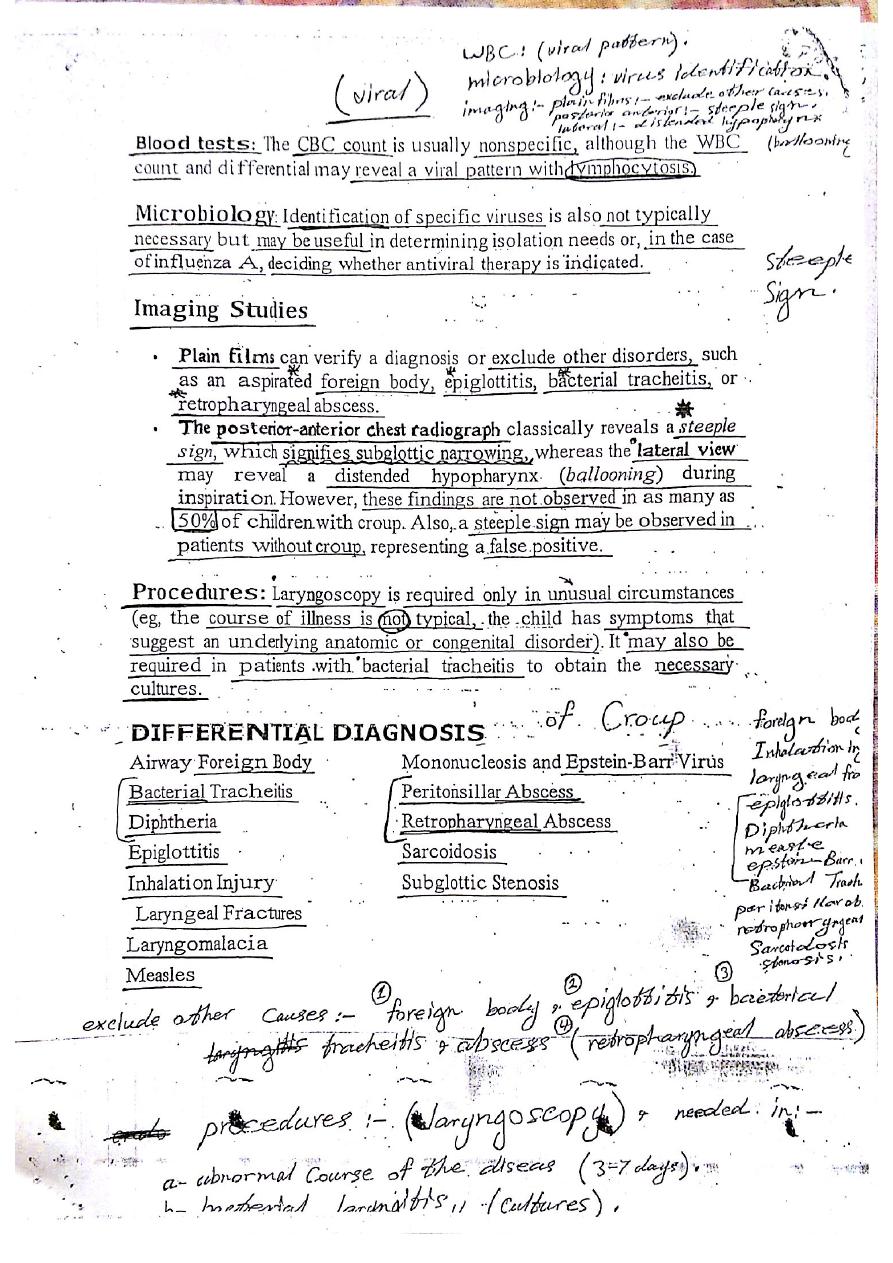 WBC: (viral pattern).
(viral)
microbiology: virus identification.
imaging:- plain films:- exclude other causes.
posterior anterior:- steeple sign.
lateral:- distended hypopharynx
(ballooning
Blood tests: The CBC count is usually nonspecific, although the WBC
count and differential may reveal a viral pattern with lymphocytosis.
Microbiology: Identification of specific viruses is also not typically
necessary but may be useful in determining isolation needs or, in the case
of influenza A, deciding whether antiviral therapy is indicated.
steeple
Sign.
Imaging Studies
• Plain films can verify a diagnosis or exclude other disorders, such
as an aspirated foreign body, epiglottitis, bacterial tracheitis, or
retropharyngeal abscess.
• The posterior-anterior chest radiograph classically reveals a steeple
sign, which signifies subglottic narrowing, whereas the lateral view
may reveal a distended hypopharynx (ballooning) during
inspiration. However, these findings are not observed in as many as
50% of children with croup. Also, a steeple sign may be observed in
patients without croup, representing a false positive.
Procedures: Laryngoscopy is required only in unusual circumstances
(eg, the course of illness is not typical, the child has symptoms that
suggest an underlying anatomic or congenital disorder). It may also be
required in patients with bacterial tracheitis to obtain the necessary
cultures.
DIFFERENTIAL DIAGNOSIS of Croup
Airway Foreign Body
Bacterial Tracheitis
Diphtheria
Epiglottitis
Inhalation Injury
Laryngeal Fractures
Laryngomalacia
Measles
Mononucleosis and Epstein-Barr Virus
Peritonsillar Abscess
Retropharyngeal Abscess
Sarcoidosis
Subglottic Stenosis
foreign bod
Inhalation in
laryngeal fra
epiglottitis.
Diphtheria
measle
epstein-Barr.
Bacterial Trach
peritonsillar ab.
retropharyngeal
Sarcoidosis
stenosis.
exclude other causes:- ① foreign body, ② epiglottitis, ③ bacterial
tracheitis, abscess ④ (retropharyngeal abscess)
procedures:- (laryngoscopy), needed in:-
a- abnormal Course of the diseas (3-7 days).
b- (cultures).